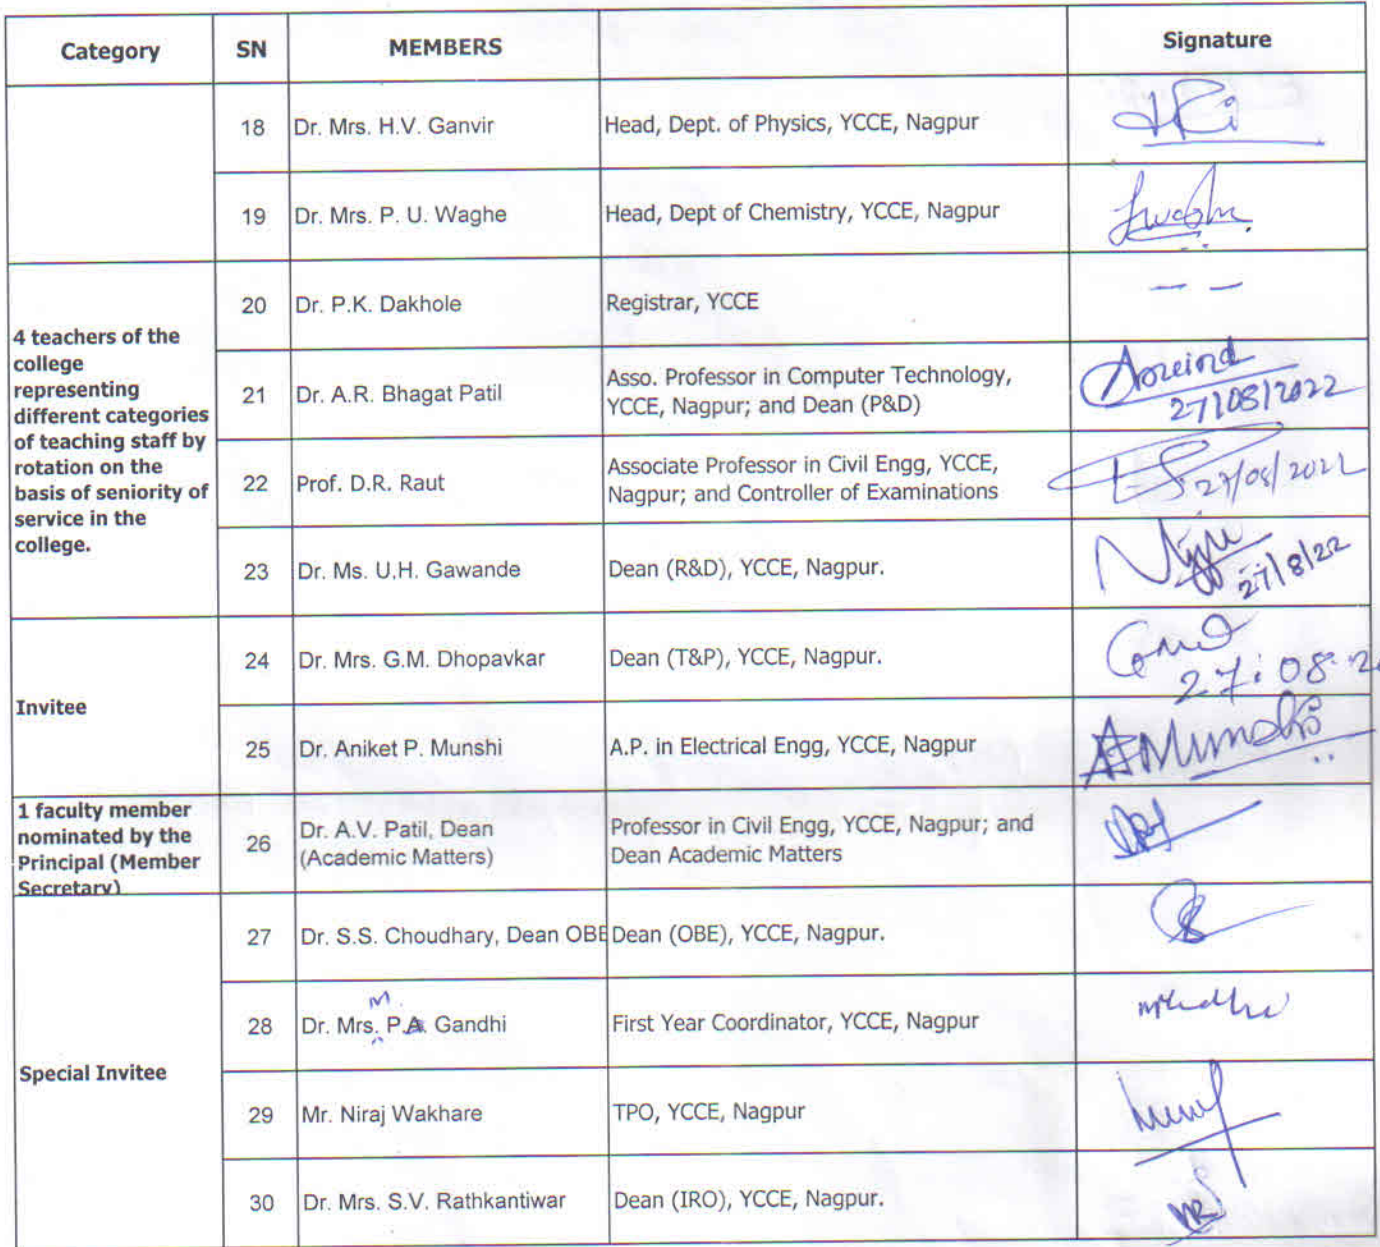 Category SN MEMBERS Signature
18 Dr. Mrs. H.V. Ganvir Head, Dept. of Physics, YCCE, Nagpur
19 Dr. Mrs. P. U. Waghe Head, Dept of Chemistry, YCCE, Nagpur
4 teachers of the
college
representing
different categories
of teaching staff by
rotation on the
basis of seniority of
service in the
college.
20 Dr. P.K. Dakhole Registrar, YCCE - -
21 Dr. A.R. Bhagat Patil Asso. Professor in Computer Technology,
YCCE, Nagpur; and Dean (P&D)
27/08/2022
22 Prof. D.R. Raut Associate Professor in Civil Engg, YCCE,
Nagpur; and Controller of Examinations
27/08/2022
23 Dr. Ms. U.H. Gawande Dean (R&D), YCCE, Nagpur.
27/8/22
Invitee
24 Dr. Mrs. G.M. Dhopavkar Dean (T&P), YCCE, Nagpur.
27.08.2
25 Dr. Aniket P. Munshi A.P. in Electrical Engg, YCCE, Nagpur
AMunshi
1 faculty member
nominated by the
Principal (Member
Secretary)
26 Dr. A.V. Patil, Dean
(Academic Matters)
Professor in Civil Engg, YCCE, Nagpur; and
Dean Academic Matters
Special Invitee
27 Dr. S.S. Choudhary, Dean OBE Dean (OBE), YCCE, Nagpur.
M
28 Dr. Mrs. P.A. Gandhi First Year Coordinator, YCCE, Nagpur
29 Mr. Niraj Wakhare TPO, YCCE, Nagpur
30 Dr. Mrs. S.V. Rathkantiwar Dean (IRO), YCCE, Nagpur.